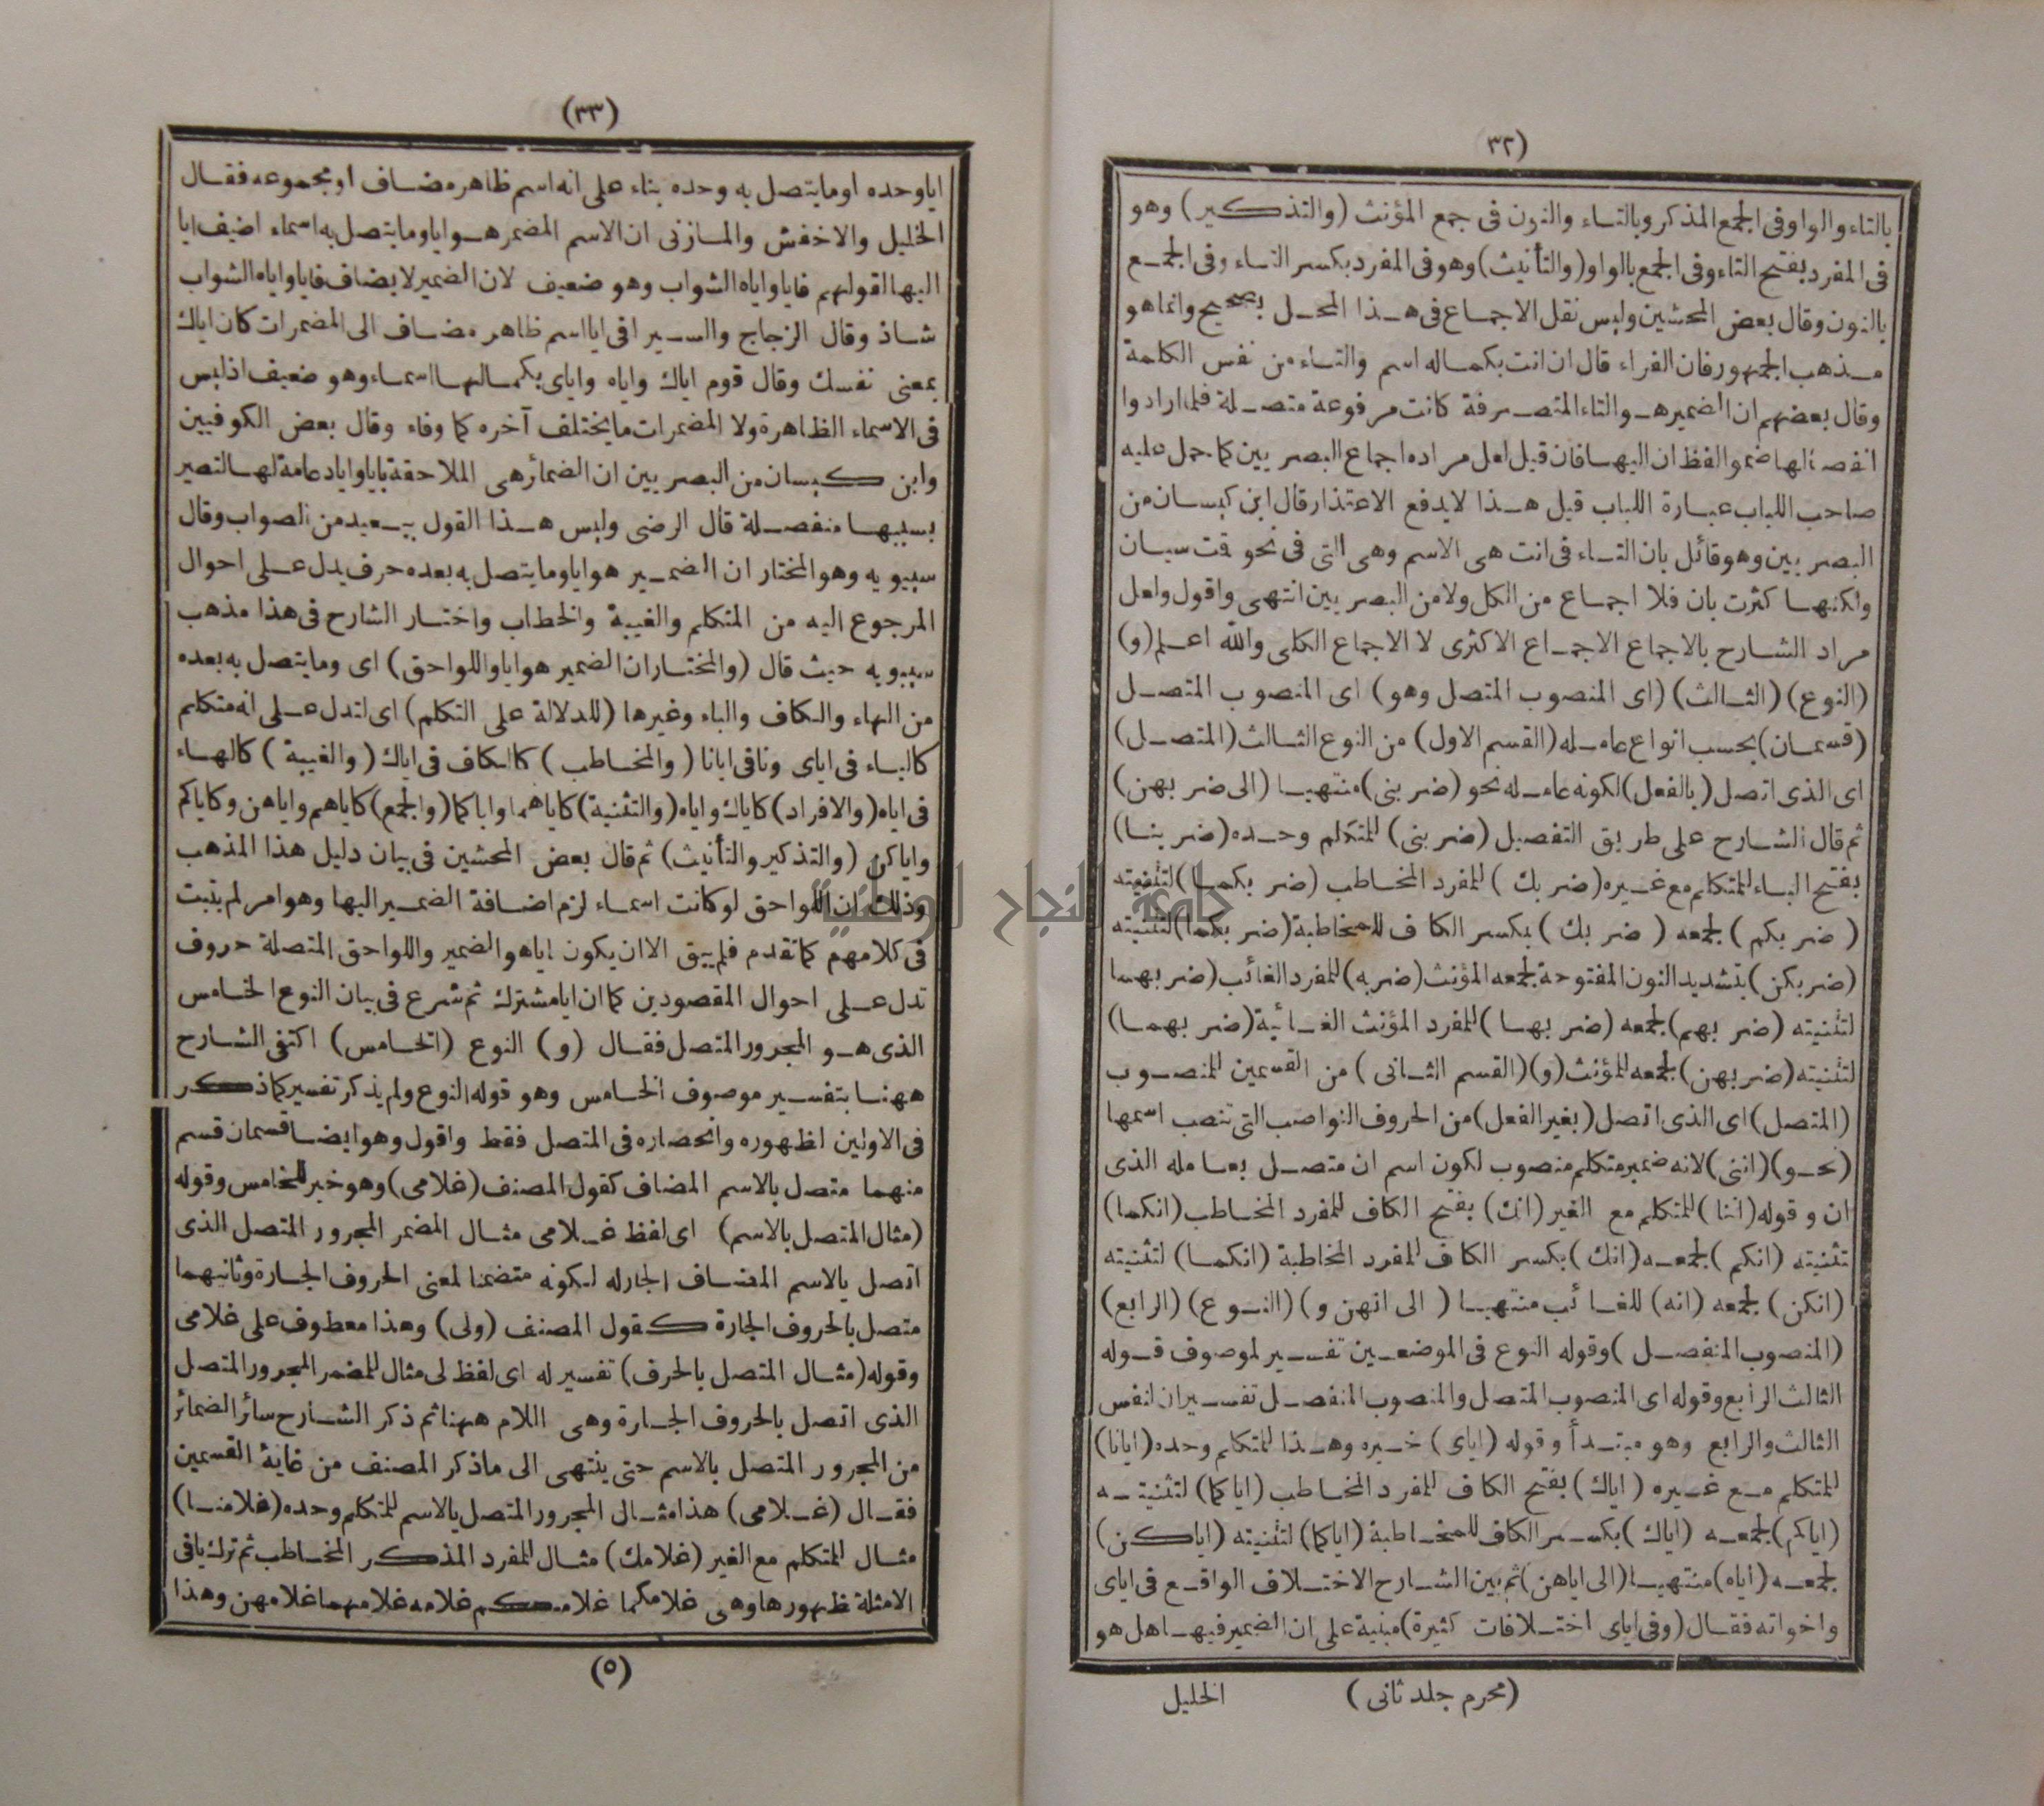 (٣٢)
بالتاء والواو فى الجمع المذكر وبالتاء والنون فى جمع المؤنث (والتذكير) وهو
فى المفرد بفتح التاء وفى الجمع بالواو (والتأنيث) وهو فى المفرد بكسر التاء وفى الجمع
بالنون وقال بعض المحشين وليس نقل الاجماع فى هذا المحل بصحيح وانما هو
مذهب الجمهور فان الفراء قال ان انت بكماله اسم والتاء من نفس الكلمة
وقال بعضهم ان الضمير هو التاء المتصرفة كانت مرفوعة متصلة فلما ارادوا
انفصالها ضموا لفظ ان اليها فان قيل لعل مراده اجماع البصريين كما حمل عليه
صاحب اللباب عبارة اللباب قيل هذا لا يدفع الاعتذار قال ابن كيسان من
البصريين وهو قائل بان التاء فى انت هى الاسم وهى التى فى نحو قت سيان
ولكنها كثرت بان فلا اجماع من الكل ولا من البصريين انتهى واقول ولعل
مراد الشارح بالاجماع الاجماع الاكثرى لا الاجماع الكلى والله اعلم (و)
(النوع) (الثالث) (اى المنصوب المتصل وهو) اى المنصوب المتصل
(قسمان) بحسب انواع عامله (القسم الاول) من النوع الثالث (المتصل)
اى الذى اتصل (بالفعل) لكونه عامله نحو (ضربنى) منتهيا (الى ضربهن)
ثم قال الشارح على طريق التفصيل (ضربنى) للمتكلم وحده (ضربنا)
بفتح الباء للمتكلم مع غيره (ضربك) للمفرد المخاطب (ضربكما) لتثنيته
(ضربكم) لجمعه (ضربك) بكسر الكاف للمخاطبة (ضربكما) لتثنيته
(ضربكن) بتشديد النون المفتوحة لجمعه المؤنث (ضربه) للمفرد الغائب (ضربهما
لتثنيته (ضربهم) لجمعه (ضربها) للمفرد المؤنث الغائبة (ضربهما)
لتثنيته (ضربهن) لجمعه للمؤنث (و) (القسم الثانى) من القسمين للمنصوب
(المتصل) اى الذى اتصل (بغير الفعل) من الحروف النواصب التى تنصب اسمها
(نحو) (اننى) لانه ضمير متكلم منصوب لكون اسم ان متصل بعامله الذى
ان وقوله (اننا) للمتكلم مع الغير (انك) بفتح الكاف للمفرد المخاطب (انكما)
تثنيته (انكم) لجمعه (انك) بكسر الكاف للمفرد المخاطبة (انكما) لتثنيته
(انكن) لجمعه (انه) للغائب منتهيا (الى انهن و) (النوع) (الرابع)
(المنصوب المنفصل) وقوله النوع فى الموضعين تفسير لموصوف قوله
الثالث الرابع وقوله اى المنصوب المتصل والمنصوب المنفصل تفسيران لنفس
الثالث والرابع وهو مبتدأ وقوله (اياى) خبره وهذا للمتكلم وحده (ايانا)
للمتكلم مع غيره (اياك) بفتح الكاف للمفرد المخاطب (اياكما) لتثنيته
(اياكم) لجمعه (اياك) بكسر الكاف للمخاطبة (اياكما) لتثنيته (اياكن)
لجمعه (اياه) منتهيا (الى اياهن) ثم بين الشارح الاختلاف الواقع فى اياى
واخواته فقال (وفى اياى اختلافات كثيرة) مبنية على ان الضمير فيها هل هو
(محرم جلد ثانى) الخليل
(٣٣)
ايا وحده او ما يتصل به وحده بناء على انه اسم ظاهر مضاف او مجموعه فقال
الخليل والاخفش والمازنى ان الاسم المضمر هو ايا وما يتصل به اسماء اضيف ايا
اليها لقولهم فايا واياه الشواب وهو ضعيف لان الضمير لا يضاف فايا واياه الشواب
شاذ وقال الزجاج والسيرافى ايا اسم ظاهر مضاف الى المضمرات كان اياك
بمعنى نفسك وقال قوم اياك واياه واياى بكمالها اسماء وهو ضعيف اذ ليس
فى الاسماء الظاهرة ولا المضمرات ما يختلف آخره كما وفاء وقال بعض الكوفيين
وابن كيسان من البصريين ان الضمائر هى الملاحقة بايا وايا دعامة لها لتصير
بسببها منفصلة قال الرضى وليس هذا القول ببعيد من الصواب وقال
سيبويه وهو المختار ان الضمير هو ايا وما يتصل به بعده حرف يدل على احوال
المرجوع اليه من المتكلم والغيبة والخطاب واختار الشارح فى هذا مذهب
سيبويه حيث قال (والمختار ان الضمير هو ايا واللواحق) اى وما يتصل به بعده
من الهاء والكاف والياء وغيرها (للدلالة على التكلم) اى لتدل على انه متكلم
كالياء فى اياى ونا فى ايانا (والمخاطب) كالكاف فى اياك (والغيبة) كالهاء
فى اياه (والافراد) كاياك واياه (والتثنية) كاياهما واياكما (والجمع) كاياهم واياهن وكاياكم
واياكن (والتذكير والتأنيث) ثم قال بعض المحشين فى بيان دليل هذا المذهب
وذلك ان اللواحق لو كانت اسماء لزم اضافة الضمير اليها وهو امر لم يثبت
فى كلامهم كما تقدم فلم يبق الا ان يكون اياه هو الضمير واللواحق المتصلة حروف
تدل على احوال المقصودين كما ان ايا مشترك ثم شرع فى بيان النوع الخامس
الذى هو المجرور المتصل فقال (و) النوع (الخامس) اكتفى الشارح
ههنا بتفسير موصوف الخامس وهو قوله النوع ولم يذكر تفسير كما ذكر
فى الاولين لظهوره وانحصاره فى المتصل فقط واقول وهو ايضا قسمان قسم
منهما متصل بالاسم المضاف كقول المصنف (غلامى) وهو خبر للخامس وقوله
(مثال المتصل بالاسم) اى لفظ غلامى مثال المضمر المجرور المتصل الذى
اتصل بالاسم المضاف الجار له لكونه متضمنا لمعنى الحروف الجارة وثانيهما
متصل بالحروف الجارة كقول المصنف (ولى) وهذا معطوف على غلامى
وقوله (مثال المتصل بالحرف) تفسير له اى لفظ لى مثال للمضمر المجرور المتصل
الذى اتصل بالحروف الجارة وهى اللام ههنا ثم ذكر الشارح سائر الضمائر
من المجرور المتصل بالاسم حتى ينتهى الى ما ذكر المصنف من غاية القسمين
فقال (غلامى) هذا مثال المجرور المتصل بالاسم للمتكلم وحده (غلامنا)
مثال للمتكلم مع الغير (غلامك) مثال للمفرد المذكر المخاطب ثم ترك باقى
الامثلة لظهورها وهى غلامكما غلامكم غلامه غلامهما غلامهن وهذا
(٥)
جامعة النجاح الوطنية